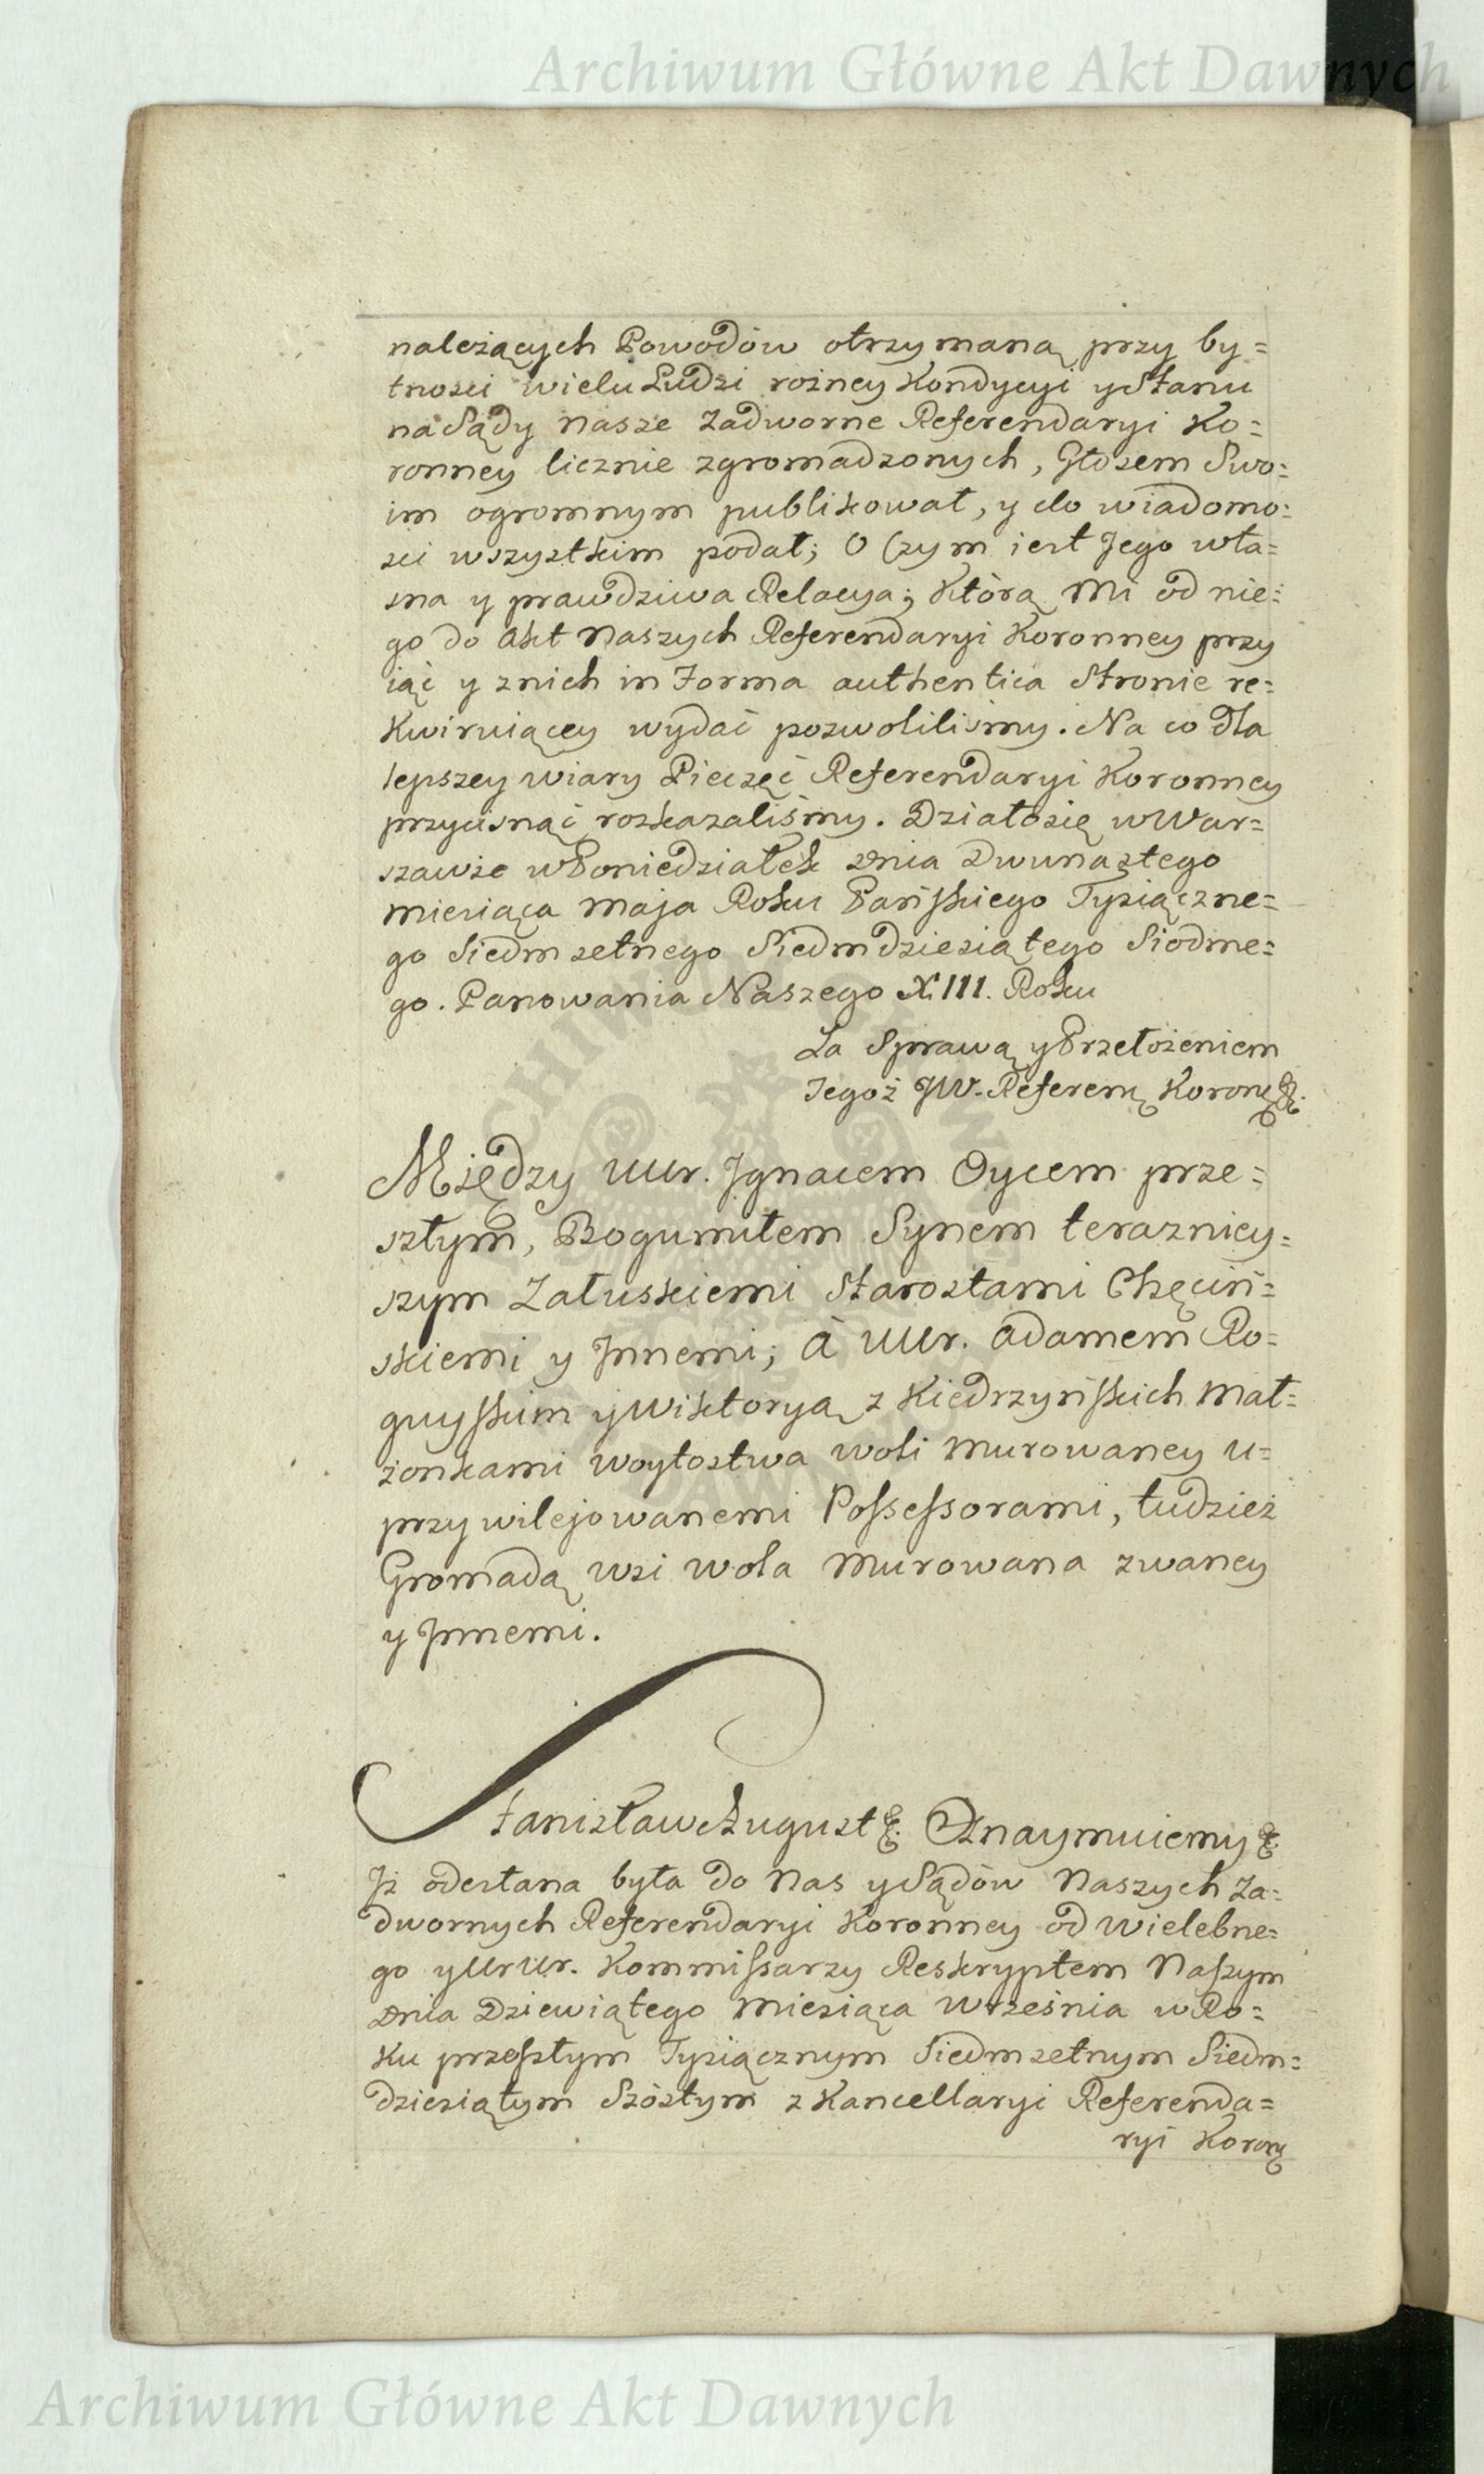 Archiwum Główne Akt Dawnych
należących Powodów otrzymaną przy by=
tnosci wielu Ludzi rożney Kondycyi y Stanu
na Sądy nasze Zadworne Referendaryi Ko=
ronney licznie zgromadzonych, Głosem Swo=
im ogromnym publikował, y do wiadomo=
sci wszystkim podał; O Czym iest Jego wła=
sna y prawdziwa Relacya; Którą Mi od nie=
go do Akt Naszych Referendaryi Koronney przy
iąć y z nich in Forma authentica Stronie re=
kwiruiącey wydać pozwoliliśmy. Na co dla
lepszey wiary Pieczęć Referendaryi Koronney
przycisnąć roskazaliśmy. Działo się w War=
szawie w Poniedziałek Dnia Dwunastego
Miesiąca Maja Roku Pańskiego Tysiączne=
go Siedmsetnego Siedmdziesiątego Siodme=
go. Panowania Naszego XIII. Roku
Za Sprawą y Przełożeniem
Jegoż JW. Referen Koron &.
Między UUr. Ignacem Oycem prze=
szłym, Bogumiłem Synem terazniey=
szym Załuskiemi Starostami Chęciń=
skiemi y Innemi; à UUr. Adamem Ro=
guyskim y Wiktoryą z Kiedrzyńskich Mał=
żonkami Woytostwa Woli Murowaney u=
przywilejowanemi Possessorami, tudzież
Gromadą wsi Wola Murowana zwaney
y Innemi.
Stanisław August &. Oznaymuiemy &.
Iż odesłana była do Nas y Sądów Naszych Za=
dwornych Referendaryi Koronney od Wielebne=
go y Ur Ur. Kommissarzy Reskryptem Naszym
Dnia Dziewiątego Miesiąca Września w Ro=
ku przeszłym Tysiącznym Siedmsetnym Siedm=
dziesiątym Szóstym z Kancellaryi Referenda=
ryi Koron
Archiwum Główne Akt Dawnych